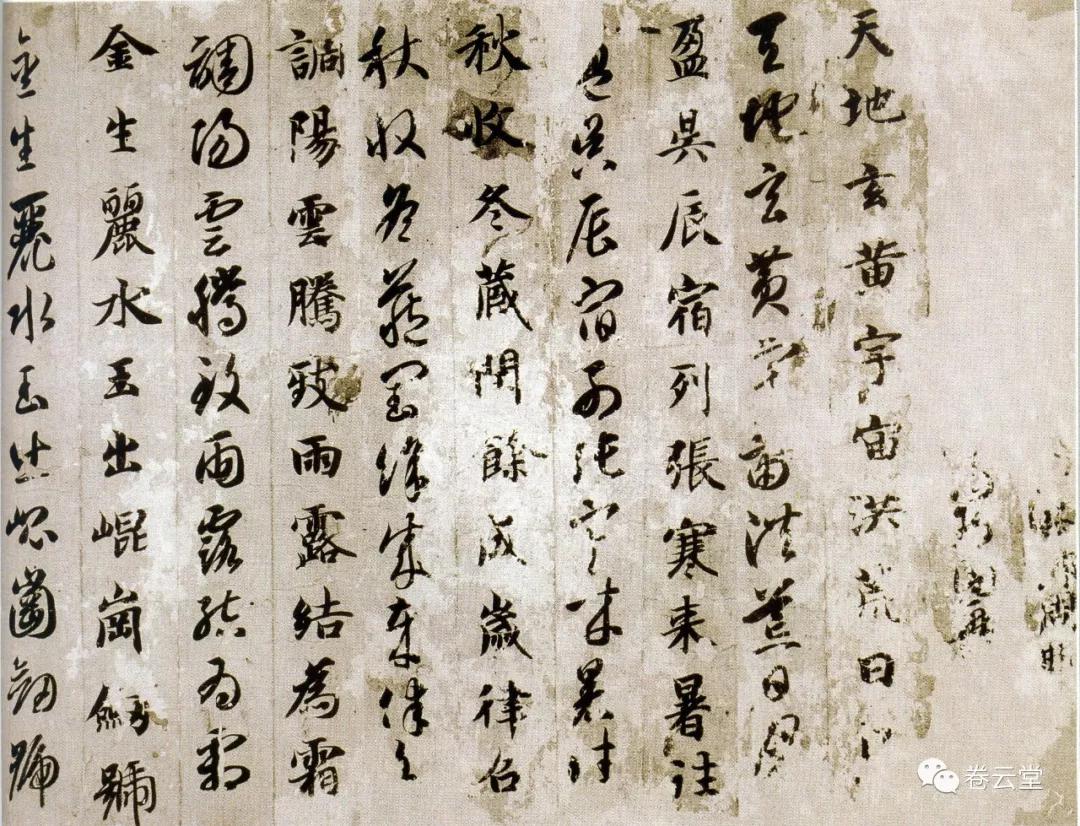 天地玄黄宇宙洪荒日
天地玄黄宇宙洪荒日月
盈昃辰宿列張寒来暑往
盈昃辰宿列張寒来暑往
秋收冬藏閏餘成歲律召
秋收冬藏閏餘成歲律召
調陽雲騰致雨露結為霜
調陽雲騰致雨露結為霜
金生麗水玉出崐崗劒號
金生麗水玉出崐崗劒號
卷云堂